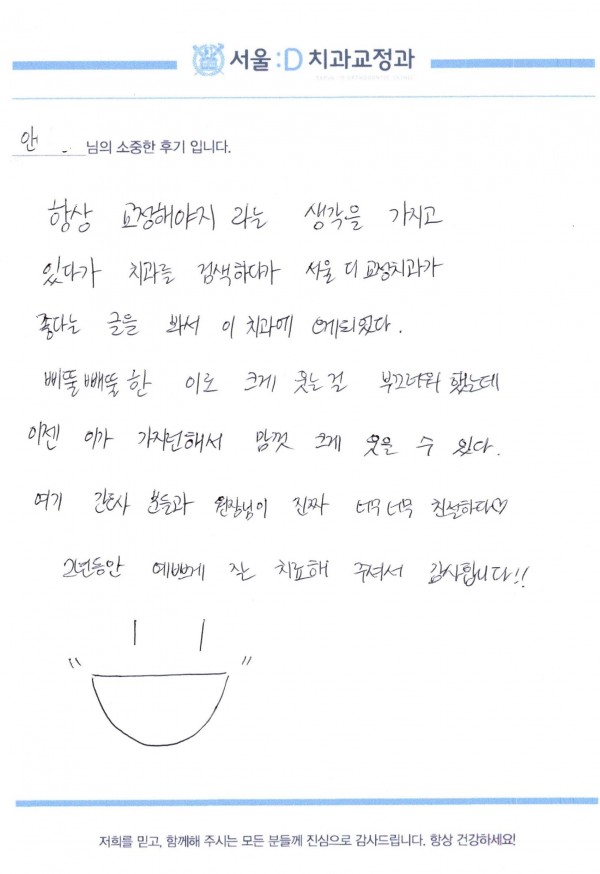 서울:D 치과교정과
안 . 님의 소중한 후기 입니다.
항상 교정해야지 라는 생각을 가지고
있다가 치과를 검색하다가 서울 디 교정치과가
좋다는 글을 봐서 이 치과에 오게되었다.
삐뚤빼뚤한 이로 크게 웃는걸 부끄러워 했는데
이젠 이가 가지런해서 맘껏 크게 웃을 수 있다.
여기 간호사 분들과 원장님이 진짜 너무너무 친절하다♡
2년동안 예쁘게 잘 치료해 주셔서 감사합니다!!
저희를 믿고, 함께해 주시는 모든 분들께 진심으로 감사드립니다. 항상 건강하세요!